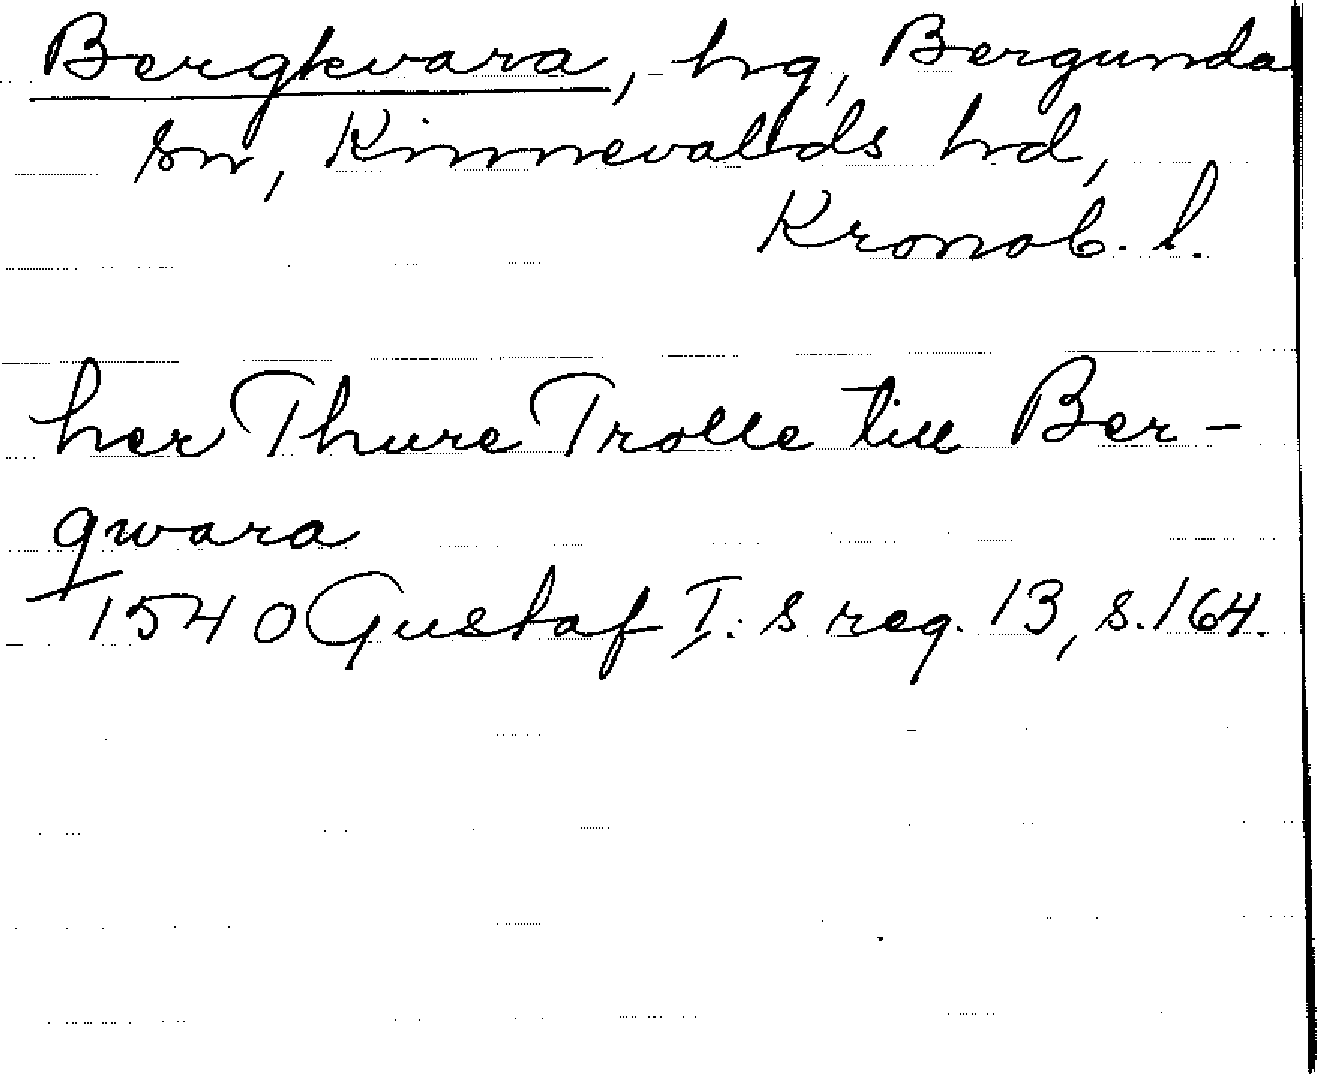 Bergkvara, hg, Bergunda
sn, Kinnevalds hd,
Kronob. l.
her Thure Trolle till Ber-
qwara
1540 Gustaf I:s reg. 13, s. 164.